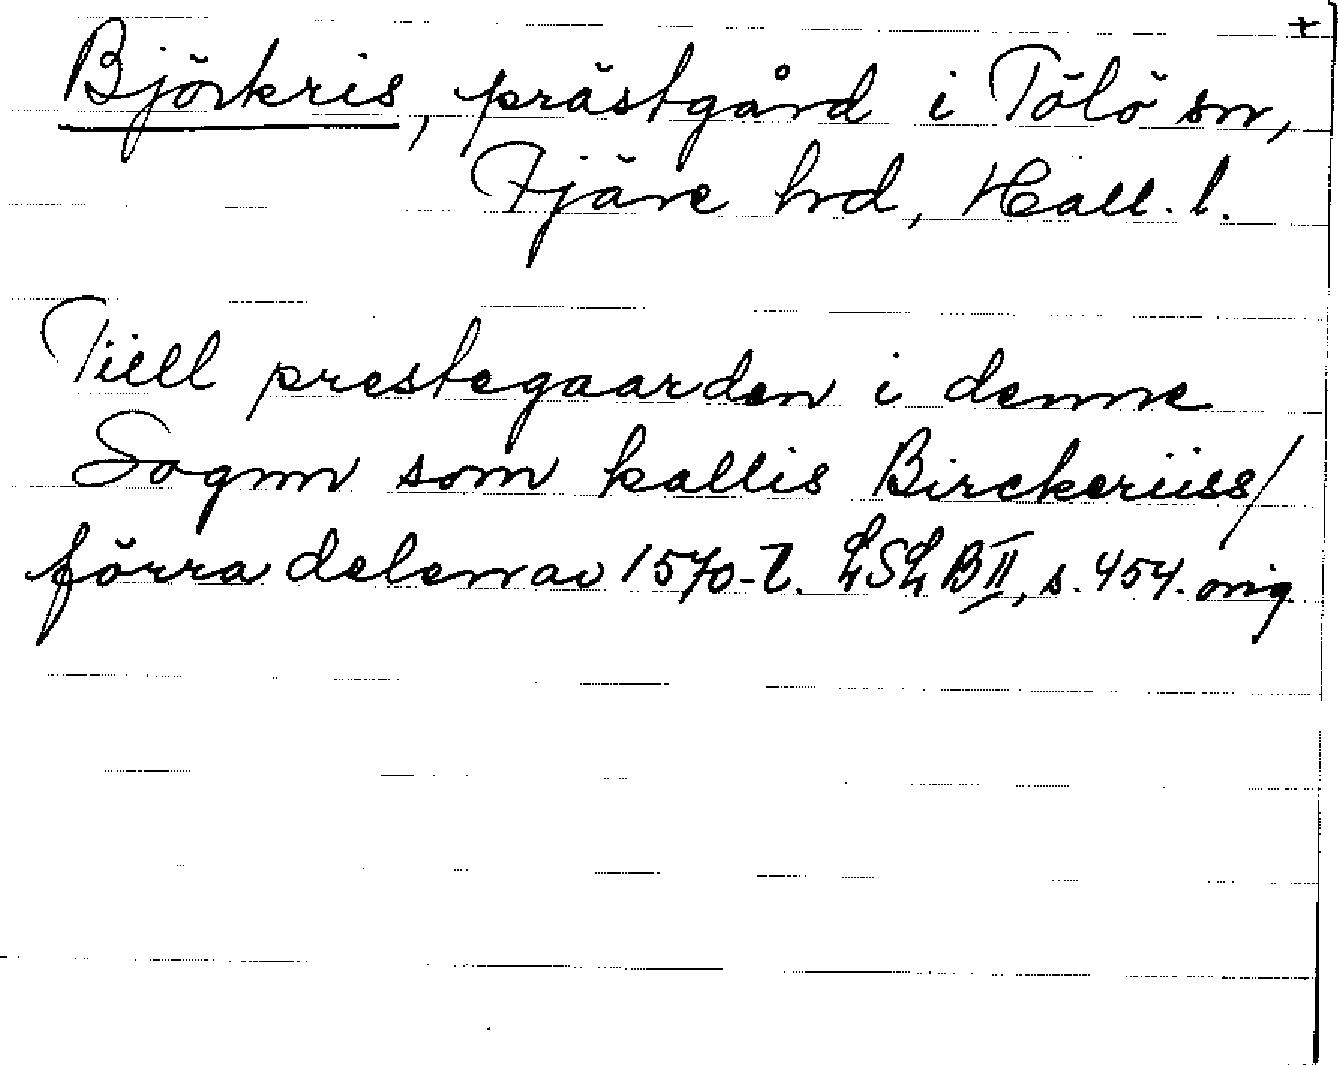 +
Björkris, prästgård i Tölö sn,
Fjäre hd, Hall. l.
Tiell prestegaarden i denne
Sognn som kallis Birckeriiss/
förra delen av 1570-t. LSLB II, s. 454. orig.